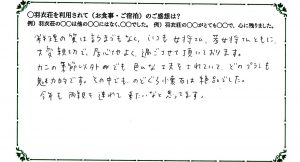 〇羽衣荘を利用されて（お食事・ご宿泊）のご感想は？
例）羽衣荘の〇〇は他の〇〇にはなく、〇〇でした。 例）羽衣荘の〇〇がとても〇〇で、心に残りました。
お料理の質は言うまでもなく、いつも女将さん、若女将さんともに、
大変親切で、居心地よく、過ごさせて頂いております。
カニの季節以外でも色々な工夫をされていて、どのプランも
魅力的です。その中でものどぐろ小鍋は絶品でした。
今年も両親を連れて来たいなと思ってます。